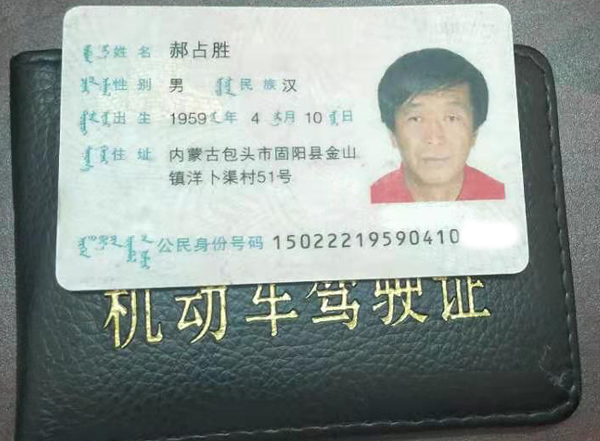 姓名 郝占胜
性别 男 民族 汉
出生 1959 年 4 月 10 日
住址 内蒙古包头市固阳县金山
镇洋卜渠村51号
公民身份号码 15022219590410
机动车驾驶证